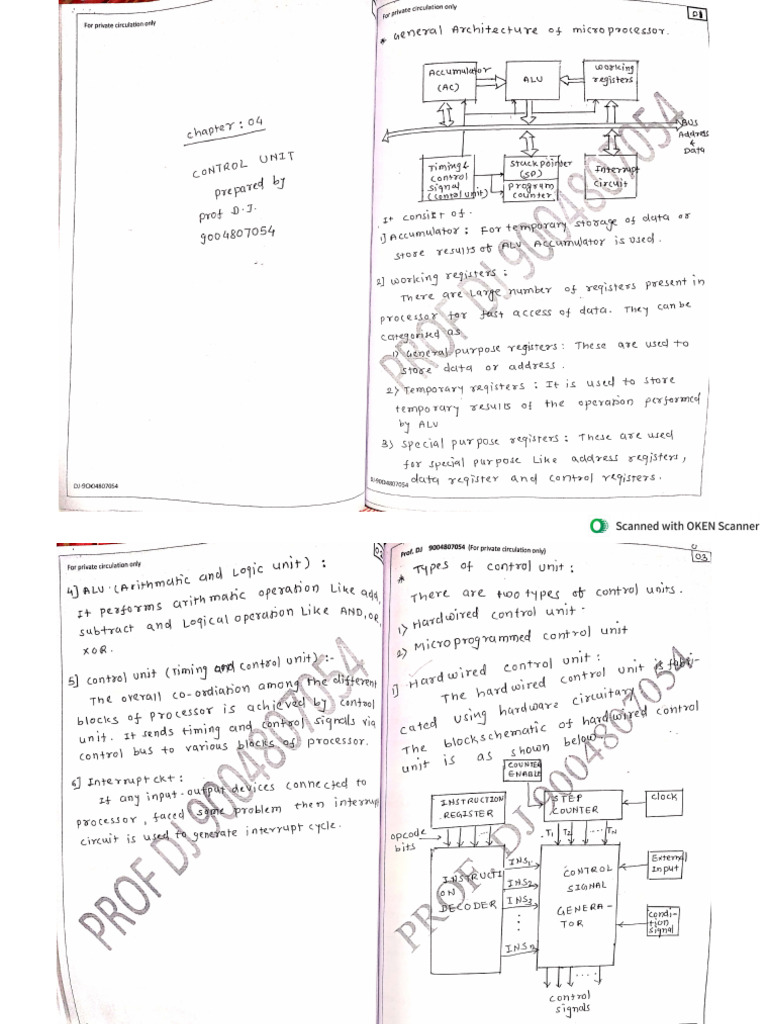 For private circulation only
chapter: 04
CONTROL UNIT
prepared by
prof D.J.
9004807054
DJ-9004807054
For private circulation only
01
* General Architecture of microprocessor.
Accumulator
(AC)
ALU
working
registers
BUS
Address
&
Data
Timing &
control
signal
(contol unit)
Stack pointer
(SP)
program
counter
Interrupt
circuit
It consist of.
1] Accumulator : For temporary storage of data or
store results of ALU Accumulator is used.
2] working registers :
There are Large number of registers present in
processor for fast access of data. They can be
categorised as
1) General purpose registers: These are used to
store data or address.
2) Temporary registers : It is used to store
temporary results of the operation performed
by ALU
3) Special purpose registers: These are used
for special purpose Like address registers,
data register and control registers.
DJ-9004807054
PROF DJ 9004807054
Scanned with OKEN Scanner
For private circulation only
4] ALU (Arithmatic and Logic unit) :
It performs arithmatic operation Like add,
subtract and Logical operation Like AND, OR,
XOR.
5] control unit (Timing and control unit) :-
The overall co-ordiation among the different
blocks of processor is achieved by control
unit. It sends timing and control signals via
control bus to various blocks of processor.
6] Interrupt ckt :
If any input-output devices connected to
processor, faced some problem then interrupt
circuit is used to generate interrupt cycle.
PROF DJ 9004807054
Prof. DJ 9004807054 (For private circulation only)
03
* Types of control unit :
There are two types of control units.
1) Hardwired control unit.
2) Microprogrammed control unit
1] Hardwired control unit :
The hardwired control unit is fabri-
cated using hardware circuitary
The block schematic of hardwired control
unit is as shown below
COUNTER
ENABLE
INSTRUCTION
REGISTER
STEP
COUNTER
clock
opcode
bits
T1 T2 .... TN
INSTRUCTI
ON
DECODER
INS1
INS2
INS3
INSn
CONTROL
SIGNAL
GENERA-
TOR
External
Input
condi-
tion
signal
control
signals
PROF. DJ 9004807054